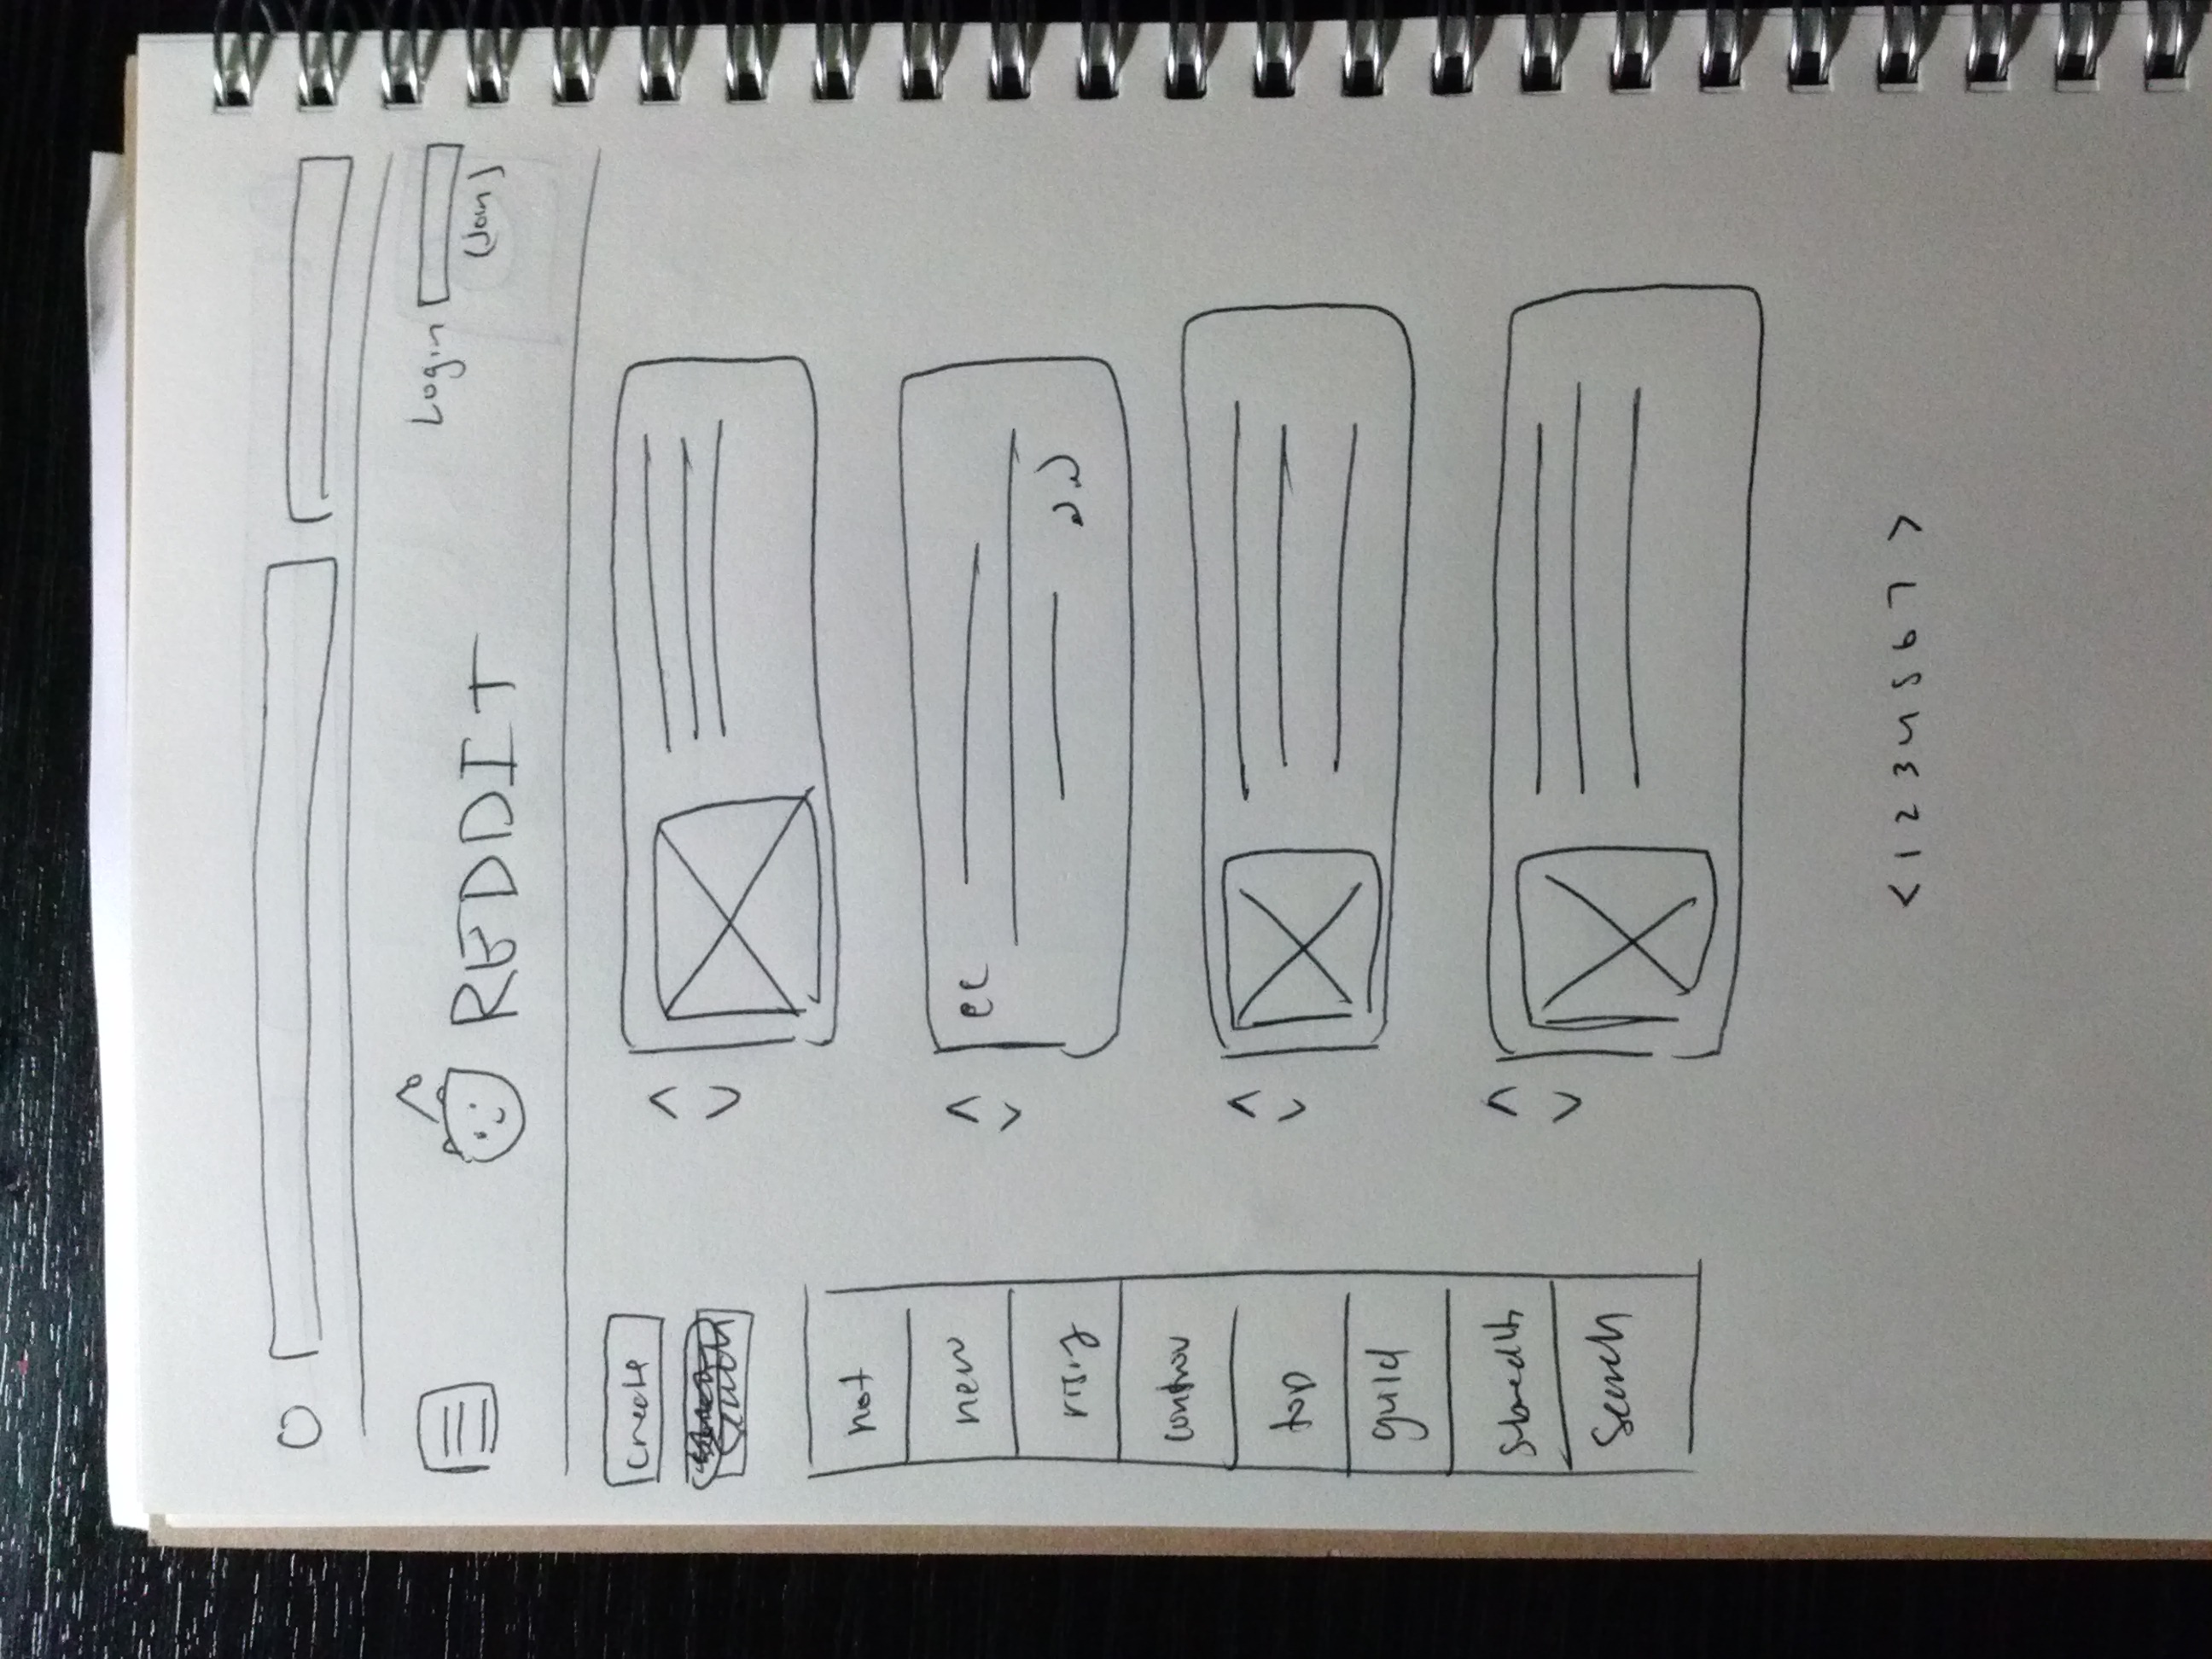 REDDIT
Login
(Join)
Create
hot
new
rising
controv
top
guild
Subreddits
Search
< 1 2 3 4 5 6 7 >